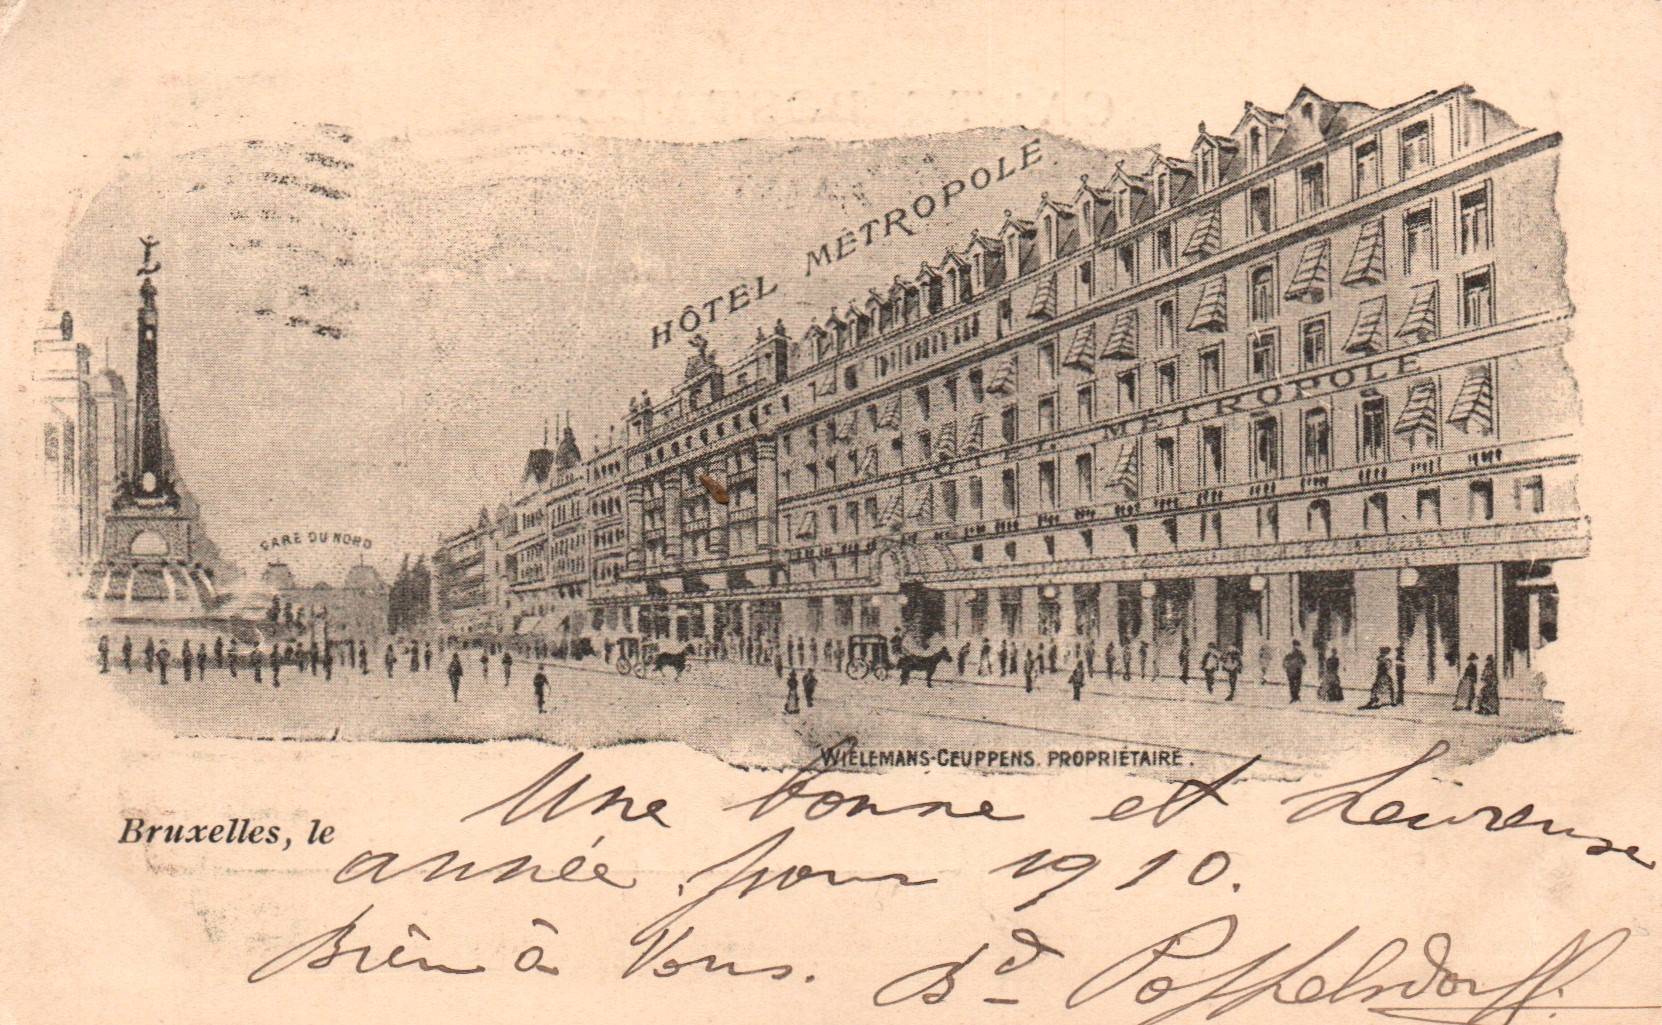 HÔTEL MÉTROPOLE
HÔTEL MÉTROPOLE
GARE DU NORD
WIELEMANS-CEUPPENS. PROPRIÉTAIRE.
Bruxelles, le
Une bonne et heureuse
année pour 1910.
Bien à Vous. Bd Poppelsdorff.